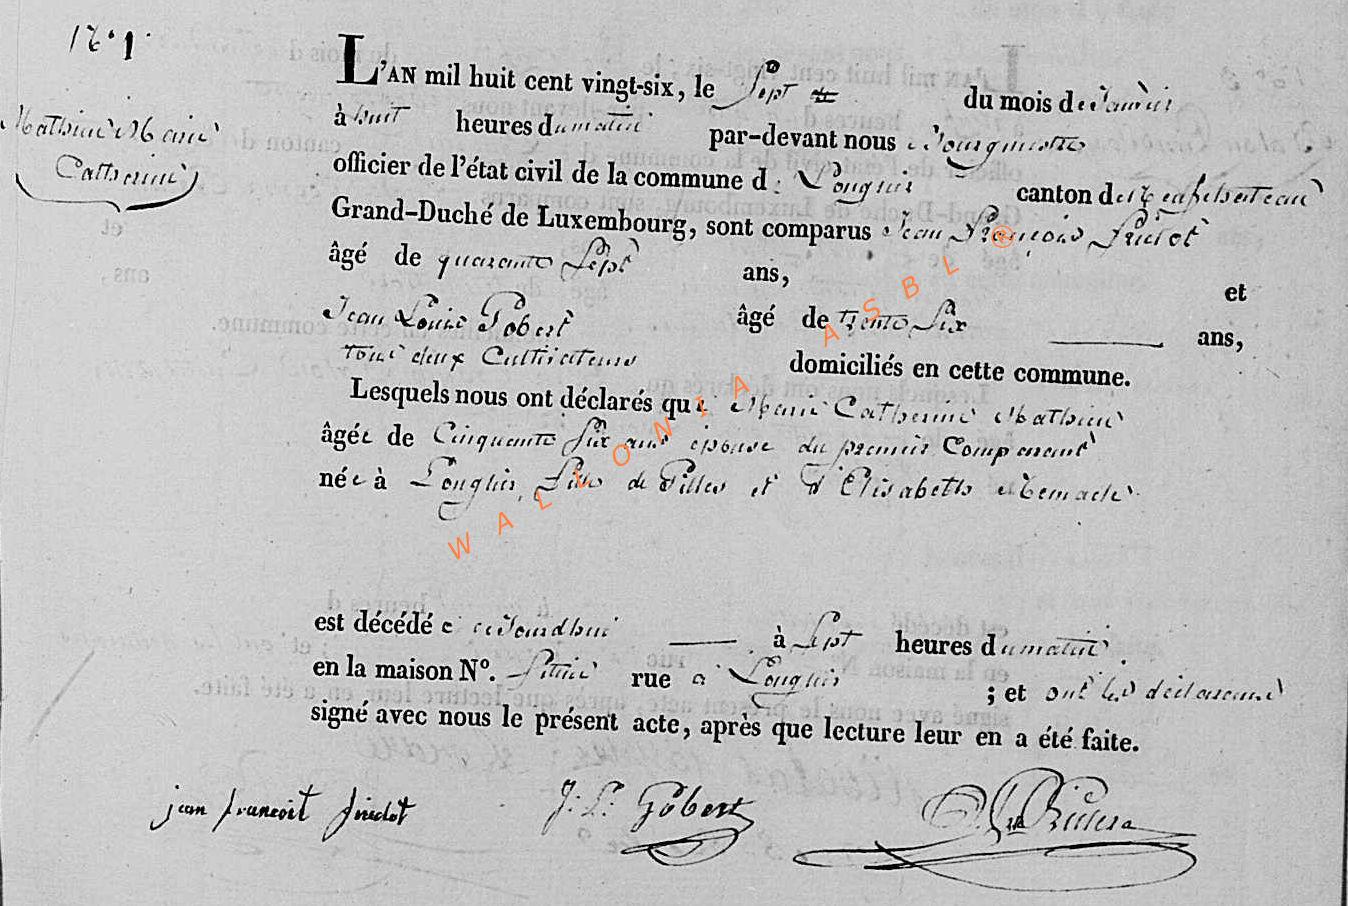 N° 1.
Mathieu Marie
Catherine
L'AN mil huit cent vingt-six, le Sept du mois de Janvier
à huit heures du matin par-devant nous Bourgmestre
officier de l'état civil de la commune de Longlier canton de Neufchateau
Grand-Duché de Luxembourg, sont comparus Jean François
âgé de quarante Sept ans, et
Jean Louis Gobert âgé de trente Six ans,
tous deux Cultivateurs domiciliés en cette commune.
Lesquels nous ont déclarés que Marie Catherine Mathieu
âgée de Cinquante Six ans épouse du premier Comparant
née à Longlier, de Gilles et d'Elisabeth
est décédée cejourdhui à Sept heures du matin
en la maison N°. Située rue a Longlier ; et ont les déclarans
signé avec nous le présent acte, après que lecture leur en a été faite.
jean francoit
J. L. Gobert
WALLONIA ASBL ®